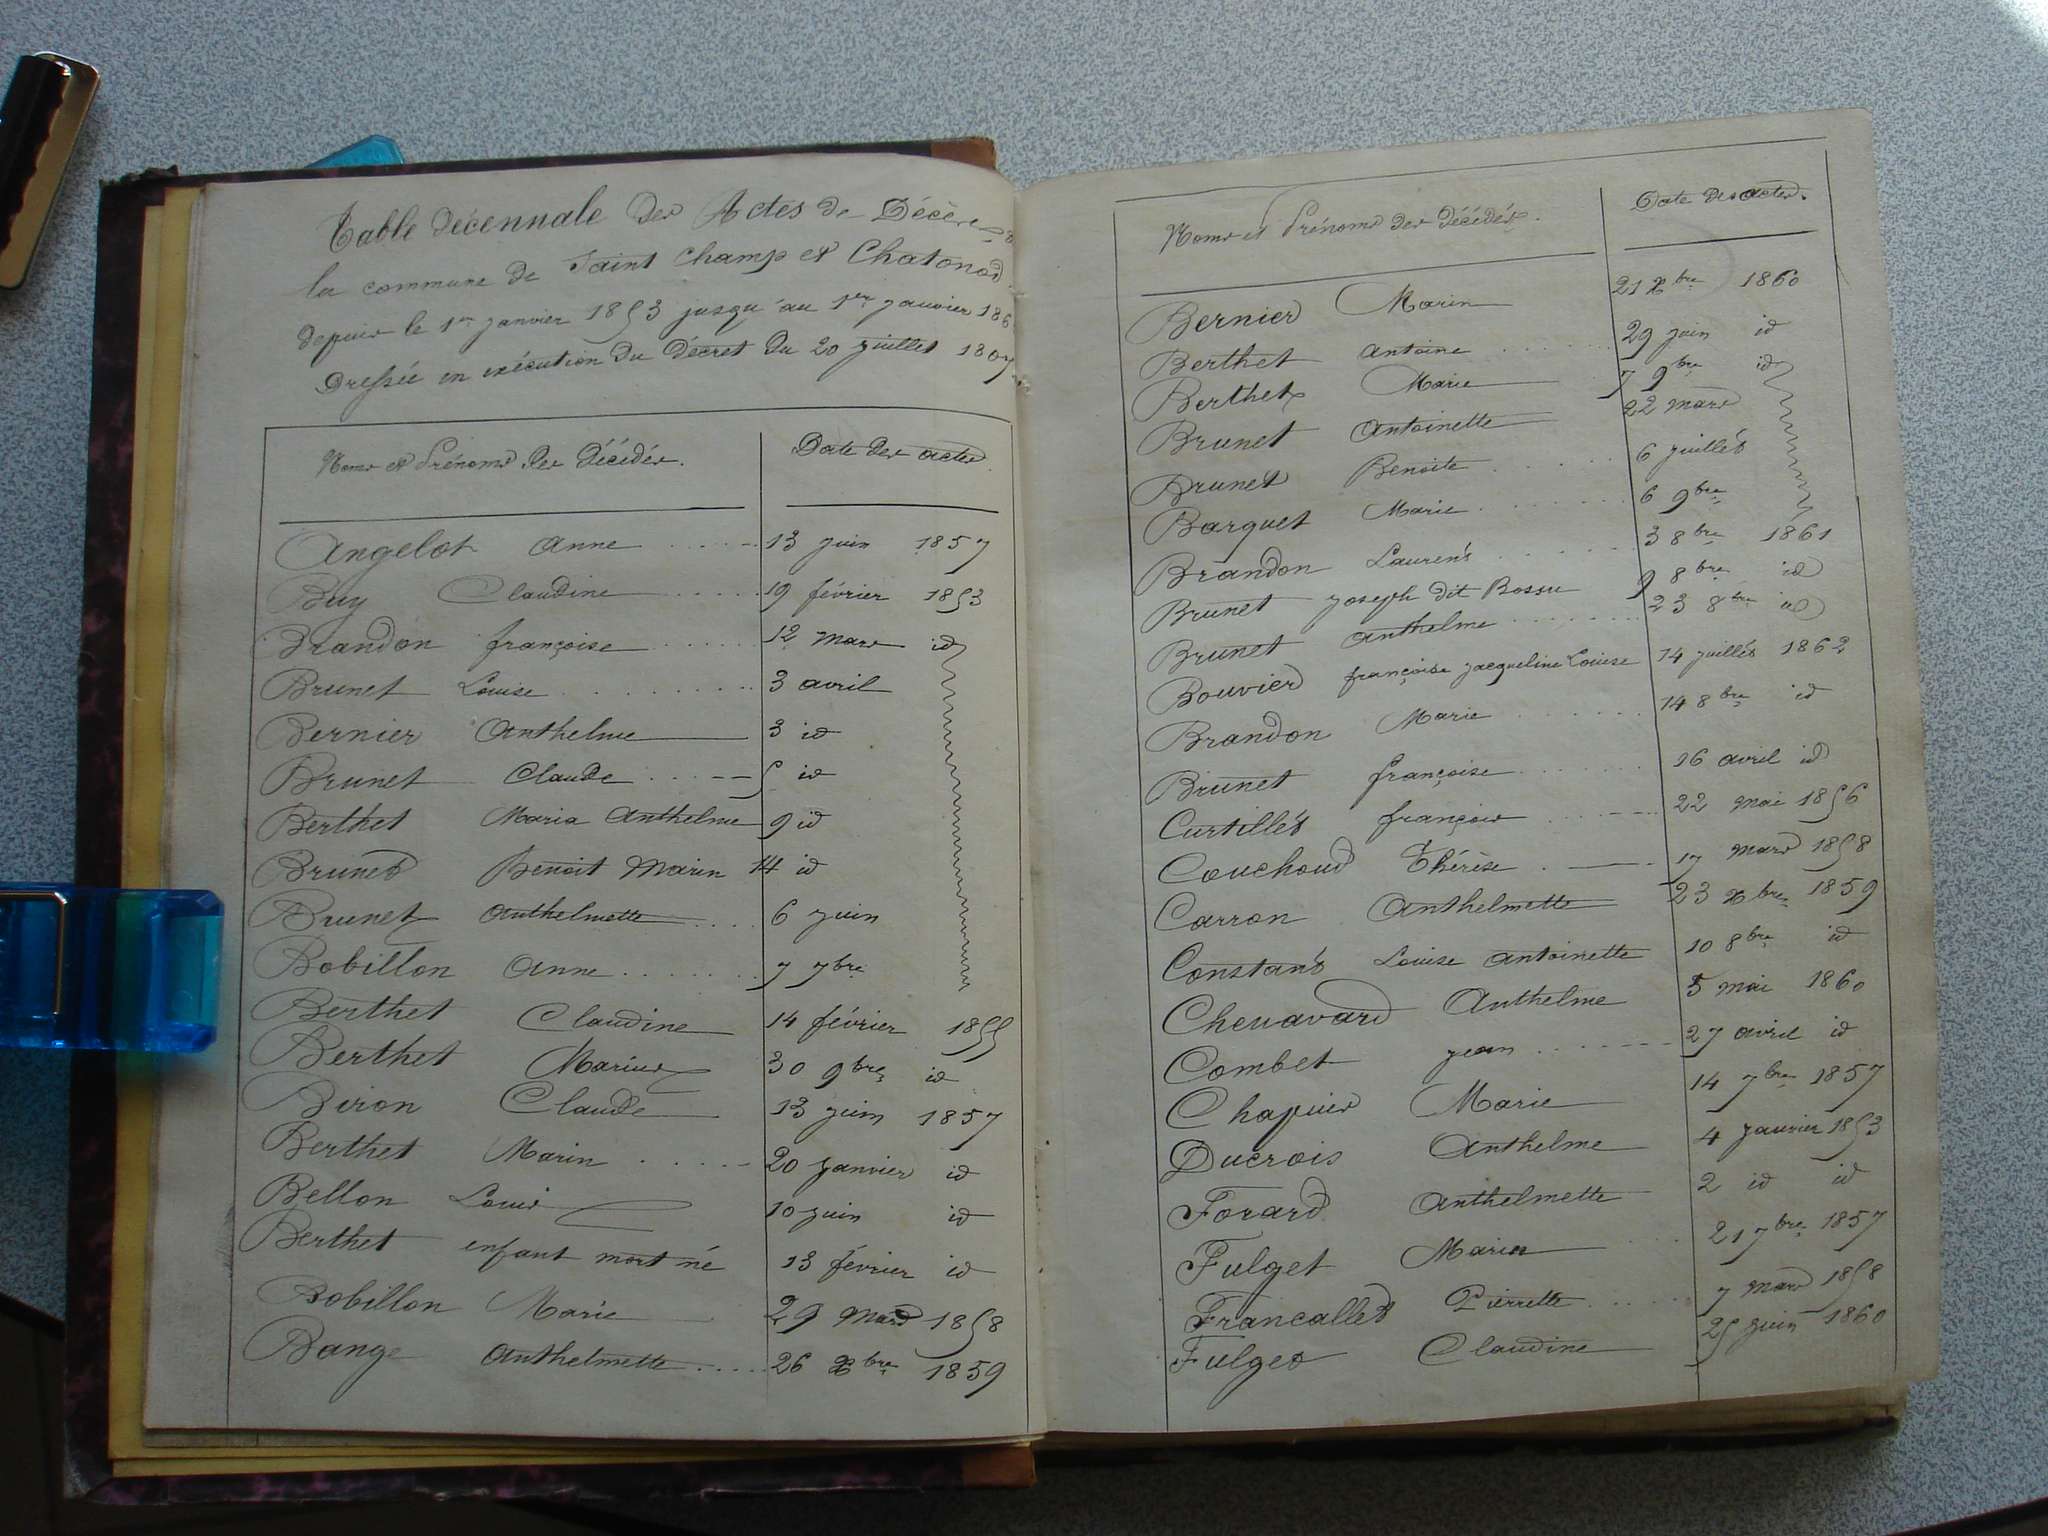 Table décennale des Actes de Décès de
la commune de Saint Champ et Chatonod
depuis le 1er janvier 1853 jusqu'au 1er janvier 186
Dressée en exécution du Décret du 20 juillet 1807
Noms et Prénoms des Décédés. Date des actes.
Angelot Anne 13 juin 1857
Buy Claudine 19 février 1853
Brandon françoise 12 mars id
Brunet Louise 3 avril
Bernier Anthelme 3 id
Brunet Claude 5 id
Berthet Maria Anthelme 9 id
Brunet Benoit Marin 14 id
Brunet Anthelmette 6 juin
Bobillon Anne 7 7bre
Berthet Claudine 14 février 1855
Berthet Marius 30 9bre id
Biron Claude 13 juin 1857
Berthet Marin 20 janvier id
Bellon Louis 10 juin id
Berthet enfant mort né 13 février id
Bobillon Marie 29 Mars 1858
Bange Anthelmette 26 Xbre 1859
Noms et Prénoms des Décédés. Date des actes.
Bernier Marin 21 Xbre 1860
Berthet Antoine 29 juin id
Berthet Marie 7 9bre id
Brunet Antoinette 22 mars
Brunet Benoite 6 juillet
Barquet Marie 6 9bre
Brandon Laurent 3 8bre 1861
Brunet joseph dit Bossu 9 8bre id
Brunet Anthelme 23 8bre id
Bouvier françoise jacqueline Louise 14 juillet 1862
Brandon Marie 14 8bre id
Brunet françoise 16 avril id
Curtillet françois 22 mai 1856
Couchoud Thérèse 17 mars 1858
Carron Anthelmette 23 Xbre 1859
Constant Louise Antoinette 10 8bre id
Chenavard Anthelme 5 mai 1860
Combet jean 27 avril id
Chapuis Marie 14 7bre 1857
Ducrois Anthelme 4 janvier 1853
Forard Anthelmette 2 id id
Fulget Marin 21 7bre 1857
Francallet Pierrette 7 mars 1858
Fulget Claudine 25 juin 1860